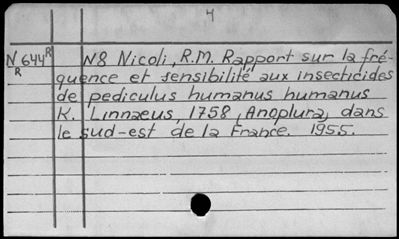 4
N 644 R N8 Nicoli, R.M. Rapport sur la fré-
R quence et sensibilité aux insecticides
de pediculus humanus humanus
K. Linnaeus, 1758, (Anoplura), dans
le sud-est de la France. 1955.